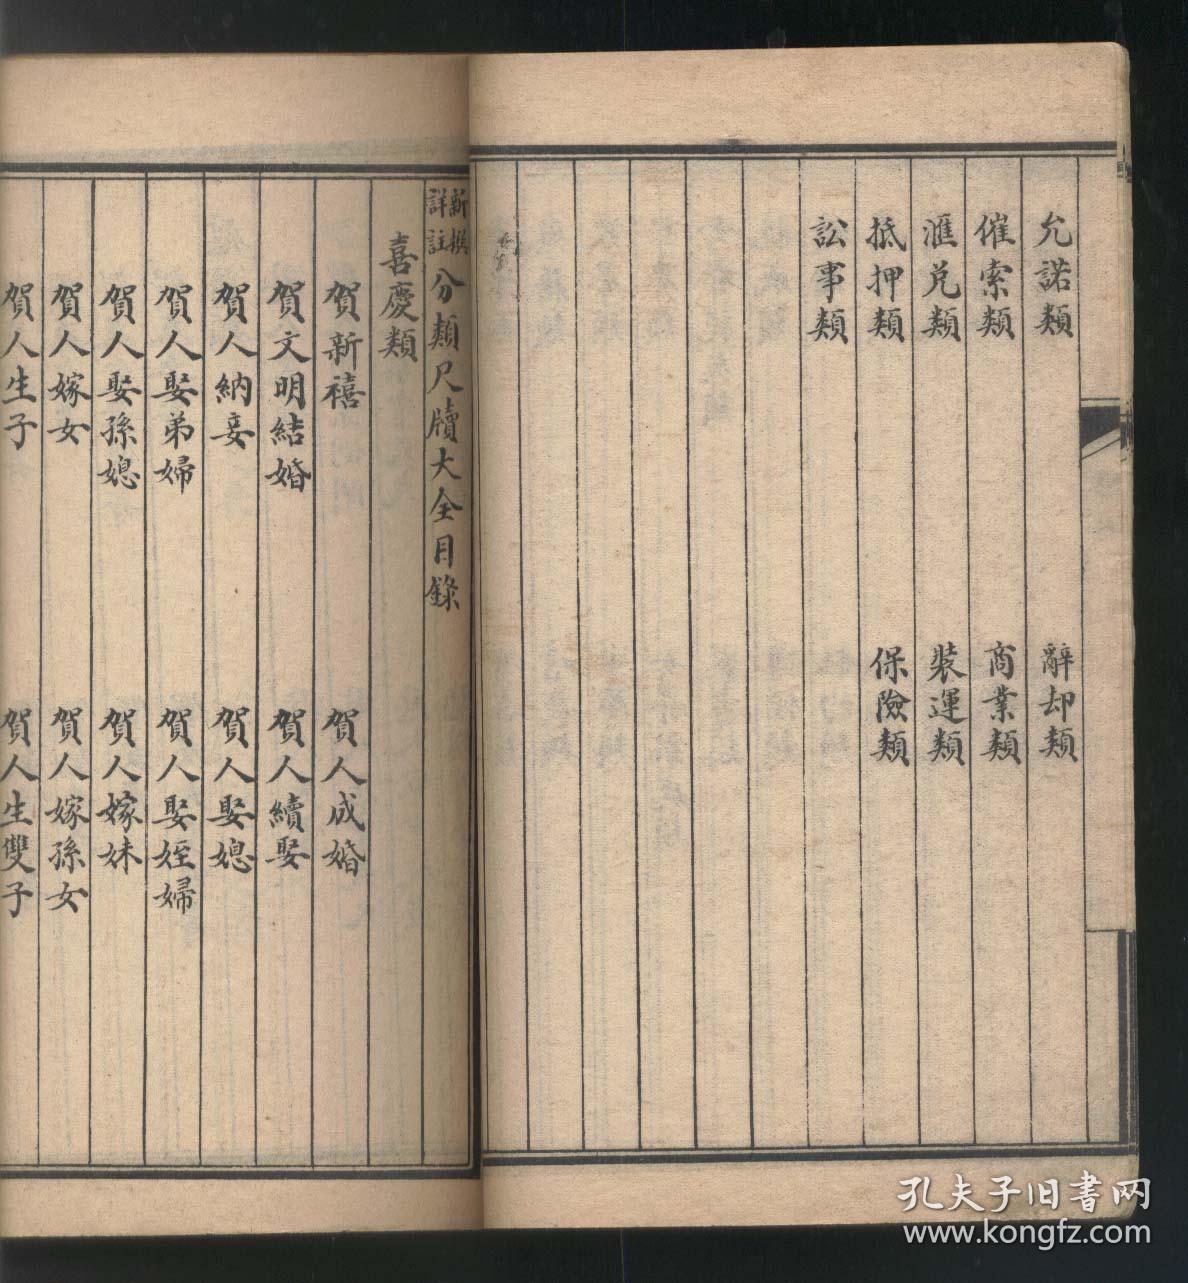 允諾類
辭却類
催索類
商業類
滙兑類
裝運類
抵押類
保險類
訟事類
新撰詳註分類尺牘大全目錄
喜慶類
賀新禧
賀人成婚
賀文明結婚
賀人續娶
賀人納妾
賀人娶媳
賀人娶弟婦
賀人娶姪婦
賀人娶孫媳
賀人嫁妹
賀人嫁女
賀人嫁孫女
賀人生子
賀人生雙子
孔夫子旧書网
www.kongfz.com